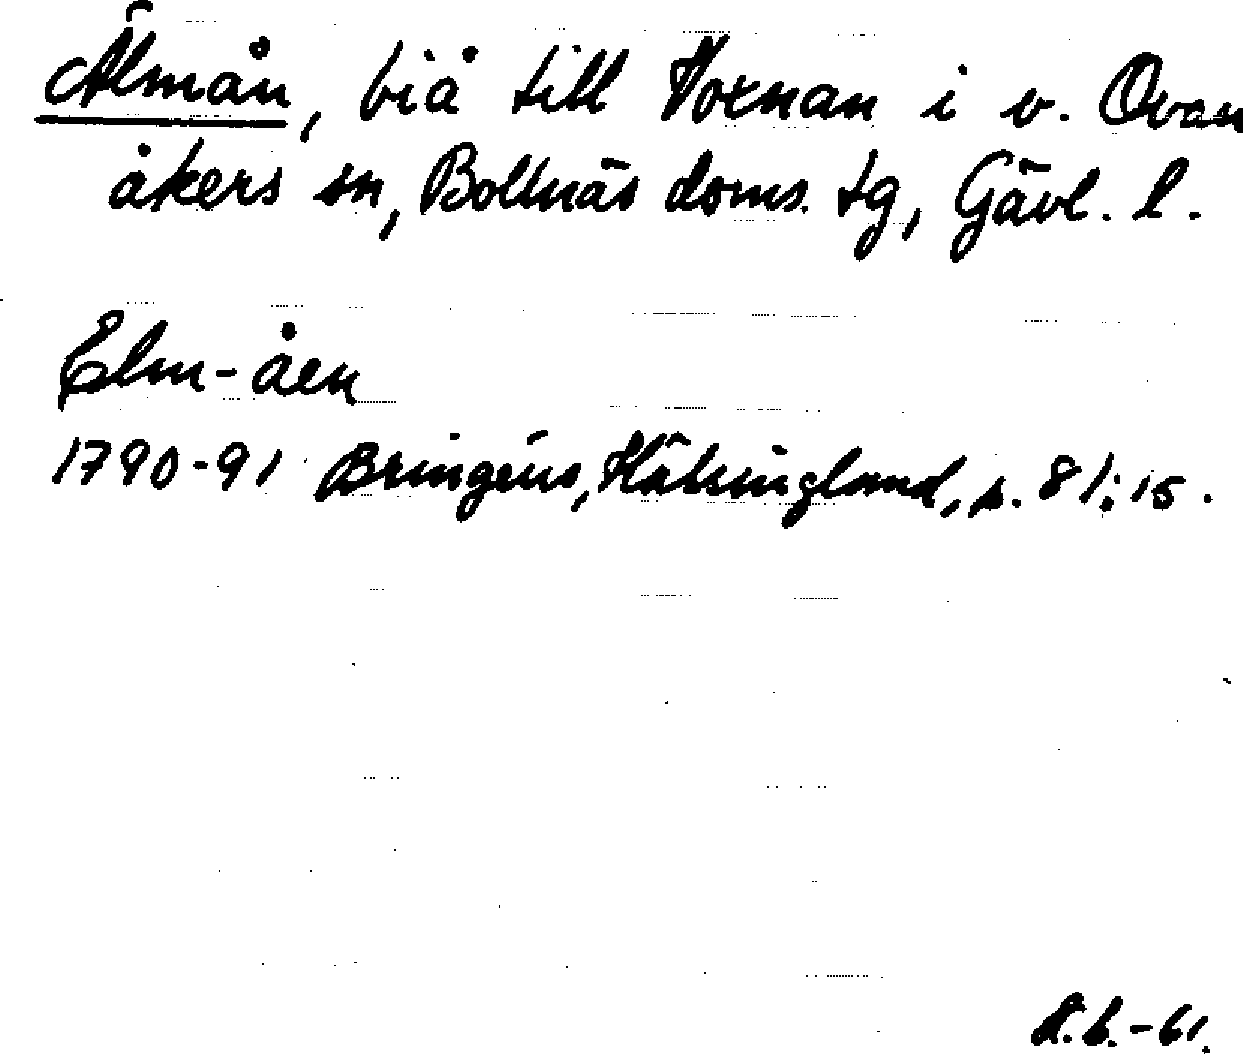 Älmån, biå till Voxnan i v. Ovan
åkers sn, Bollnäs doms. tg, Gävl. l.
Elm-åen
1790-91 Bringéus, Hälsingland, s. 81; 15.
-61.